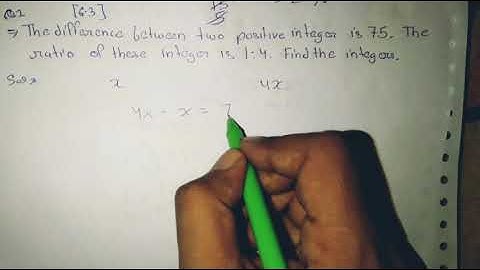 Q.2 [6.3]
⇒ The difference between two positive integer is 75. The
ratio of these integer is 1:4. Find the integers.
Sol x 4x
4x - x = 7